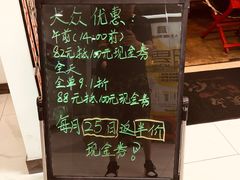 大众优惠:
午前(14:00前)
82元抵100元现金券
全天
全单9.1折
88元抵100元现金券
每月25日返半价
现金券!